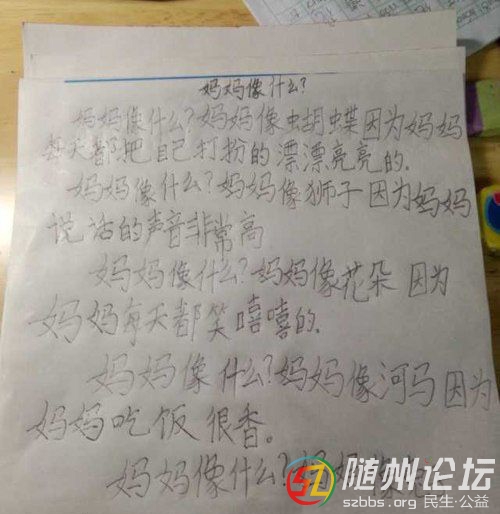 妈妈像什么?
妈妈像什么?妈妈像蝴蝶因为妈妈
每天都把自己打扮的漂漂亮亮的.
妈妈像什么?妈妈像狮子因为妈妈
说话的声音非常高
妈妈像什么?妈妈像花朵因为
妈妈每天都笑嘻嘻的.
妈妈像什么?妈妈像河马因为
妈妈吃饭很香。
妈妈像什么?妈妈像
随州论坛
szbbs.org 民生·公益